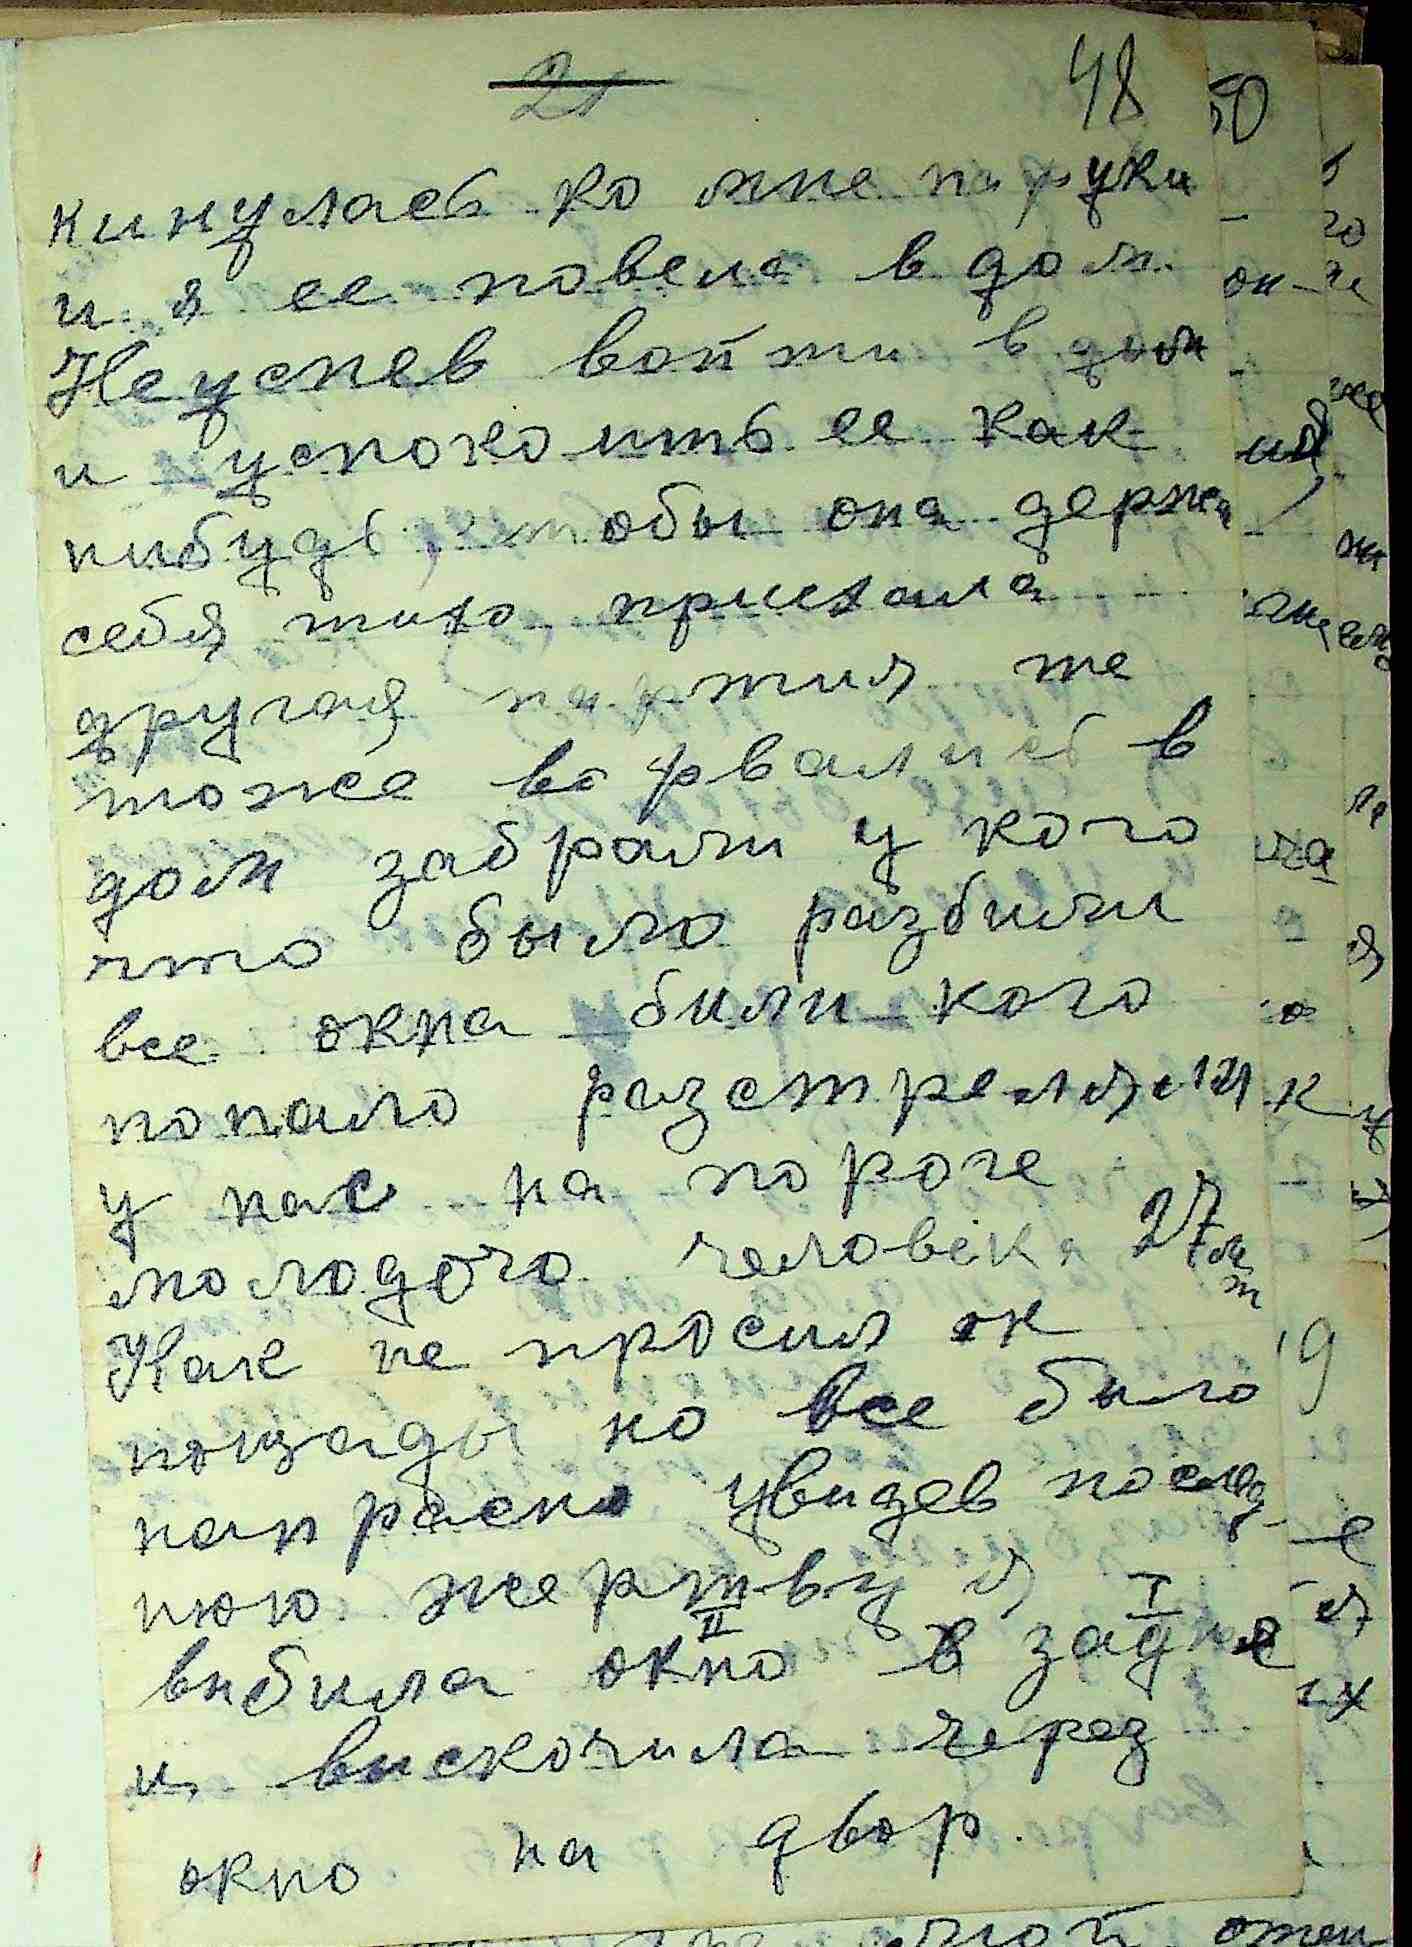 21
48
50
кинулась ко мне на руки
и я ее повела в дом.
Неуспев войти в дом
и успокоить ее как
нибудь, чтобы она держа
себя тихо приехала
другая партия те
тоже ворвались в
дом забрали у кого
что было разбили
все окна били кого
попало разстреляли
у нас на пороге
молодого человека 27 лет
Как не просил он
пощады но все было
напрасно увидев послед-
нюю жертву я I
II
выбила окно в задне
и выскочила через
окно на двор.